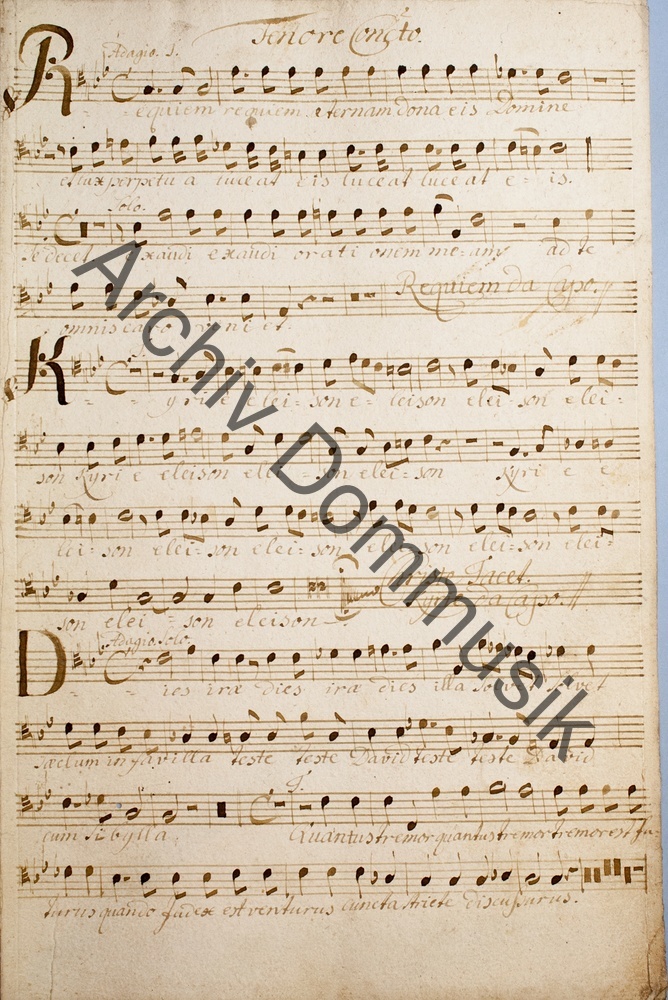 Tenore Conc̃to.
Adagio. T.
Requiem requiem æternam dona eis Domine
et lux perpetua luceat eis luceat luceat e = is.
Solo.
Te decet exaudi exaudi orationem meam ad te
omnis caro veniet. Requiem da Capo.
Kyrie e elei = son e = leison elei = son elei =
son Kyrie eleison elei = son elei = son Kyrie e
lei = son elei = son elei = son elei = son elei = son elei =
Tacet.
son elei = son eleison da Capo.
Adagio. Solo.
Dies iræ dies iræ dies illa solvet solvet
sæclum in favilla teste teste David teste teste David
T.
cum Sibylla Quantus tremor quantus tremor tremor est fu
turus quando Judex est venturus cuncta stricte discussurus.
Archiv Dommusik